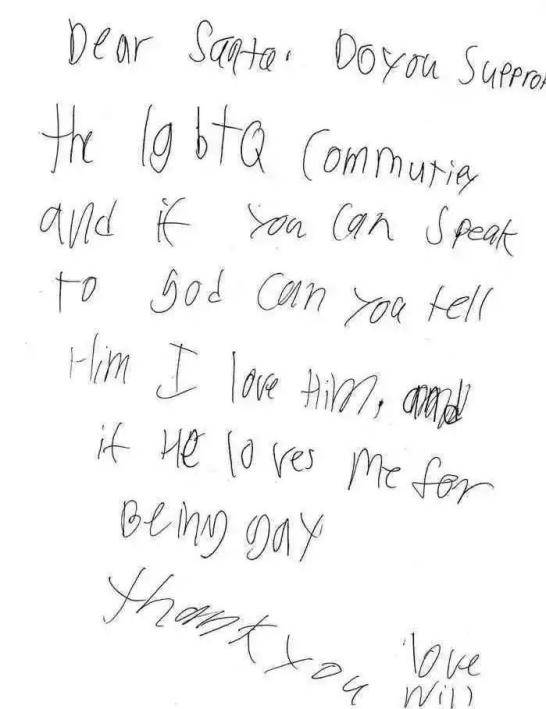 Dear Santa. Do you Supprot
the lgbtQ Commutiey
and if you can Speak
to god can you tell
Him I love Him, and
if He loves me for
Being gay
thank you love
Will